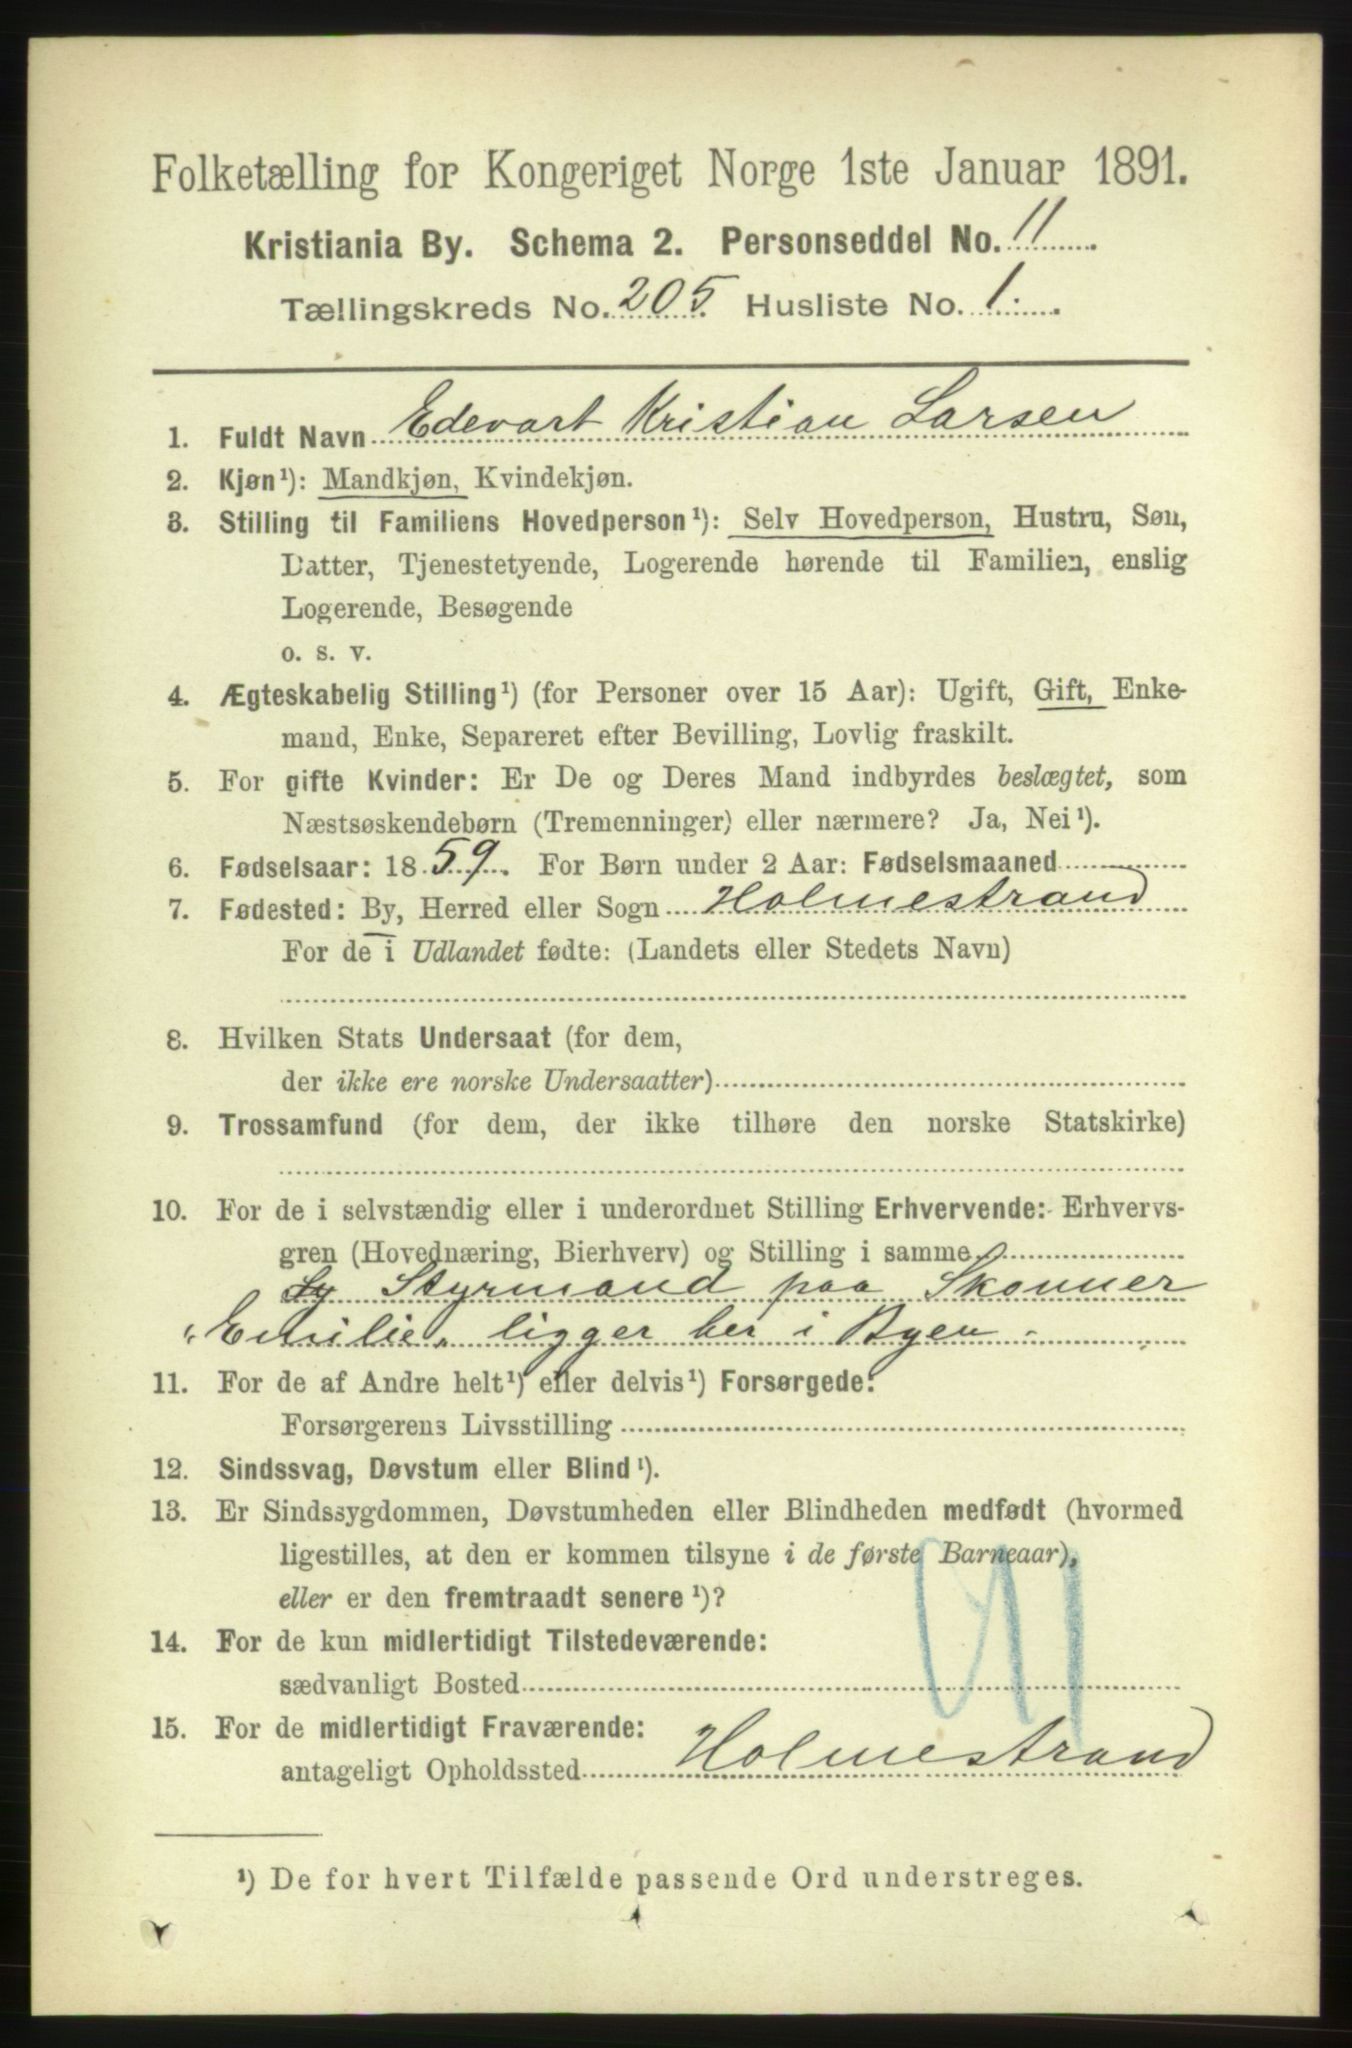 Folketælling for Kongeriget Norge 1ste Januar 1891.
Kristiania By. Schema 2. Personseddel No. 11
Tællingskreds No. 205 Husliste No. 1.
1. Fuldt Navn Edevart Kristian Larsen
2. Kjøn¹): Mandkjøn, Kvindekjøn.
3. Stilling til Familiens Hovedperson¹): Selv Hovedperson, Hustru, Søn,
Datter, Tjenestetyende, Logerende hørende til Familien, enslig
Logerende, Besøgende
o. s. v.
4. Ægteskabelig Stilling¹) (for Personer over 15 Aar): Ugift, Gift, Enke-
mand, Enke, Separeret efter Bevilling, Lovlig fraskilt.
5. For gifte Kvinder: Er De og Deres Mand indbyrdes beslægtet, som
Næstsøskendebørn (Tremenninger) eller nærmere? Ja, Nei¹).
6. Fødselsaar: 1859. For Børn under 2 Aar: Fødselsmaaned
7. Fødested: By, Herred eller Sogn Holmestrand
For de i Udlandet fødte: (Landets eller Stedets Navn)
8. Hvilken Stats Undersaat (for dem,
der ikke ere norske Undersaatter)
9. Trossamfund (for dem, der ikke tilhøre den norske Statskirke)
10. For de i selvstændig eller i underordnet Stilling Erhvervende: Erhvervs-
gren (Hovednæring, Bierhverv) og Stilling i samme
Sy Styrmand paa Skonner
"Emilie" ligger her i Byen.
11. For de af Andre helt¹) eller delvis¹) Forsørgede:
Forsørgerens Livsstilling
12. Sindssvag, Døvstum eller Blind¹).
13. Er Sindssygdommen, Døvstumheden eller Blindheden medfødt (hvormed
ligestilles, at den er kommen tilsyne i de første Barneaar),
eller er den fremtraadt senere¹)?
14. For de kun midlertidigt Tilstedeværende:
sædvanligt Bosted
15. For de midlertidigt Fraværende:
antageligt Opholdssted Holmestrand
¹) De for hvert Tilfælde passende Ord understreges.